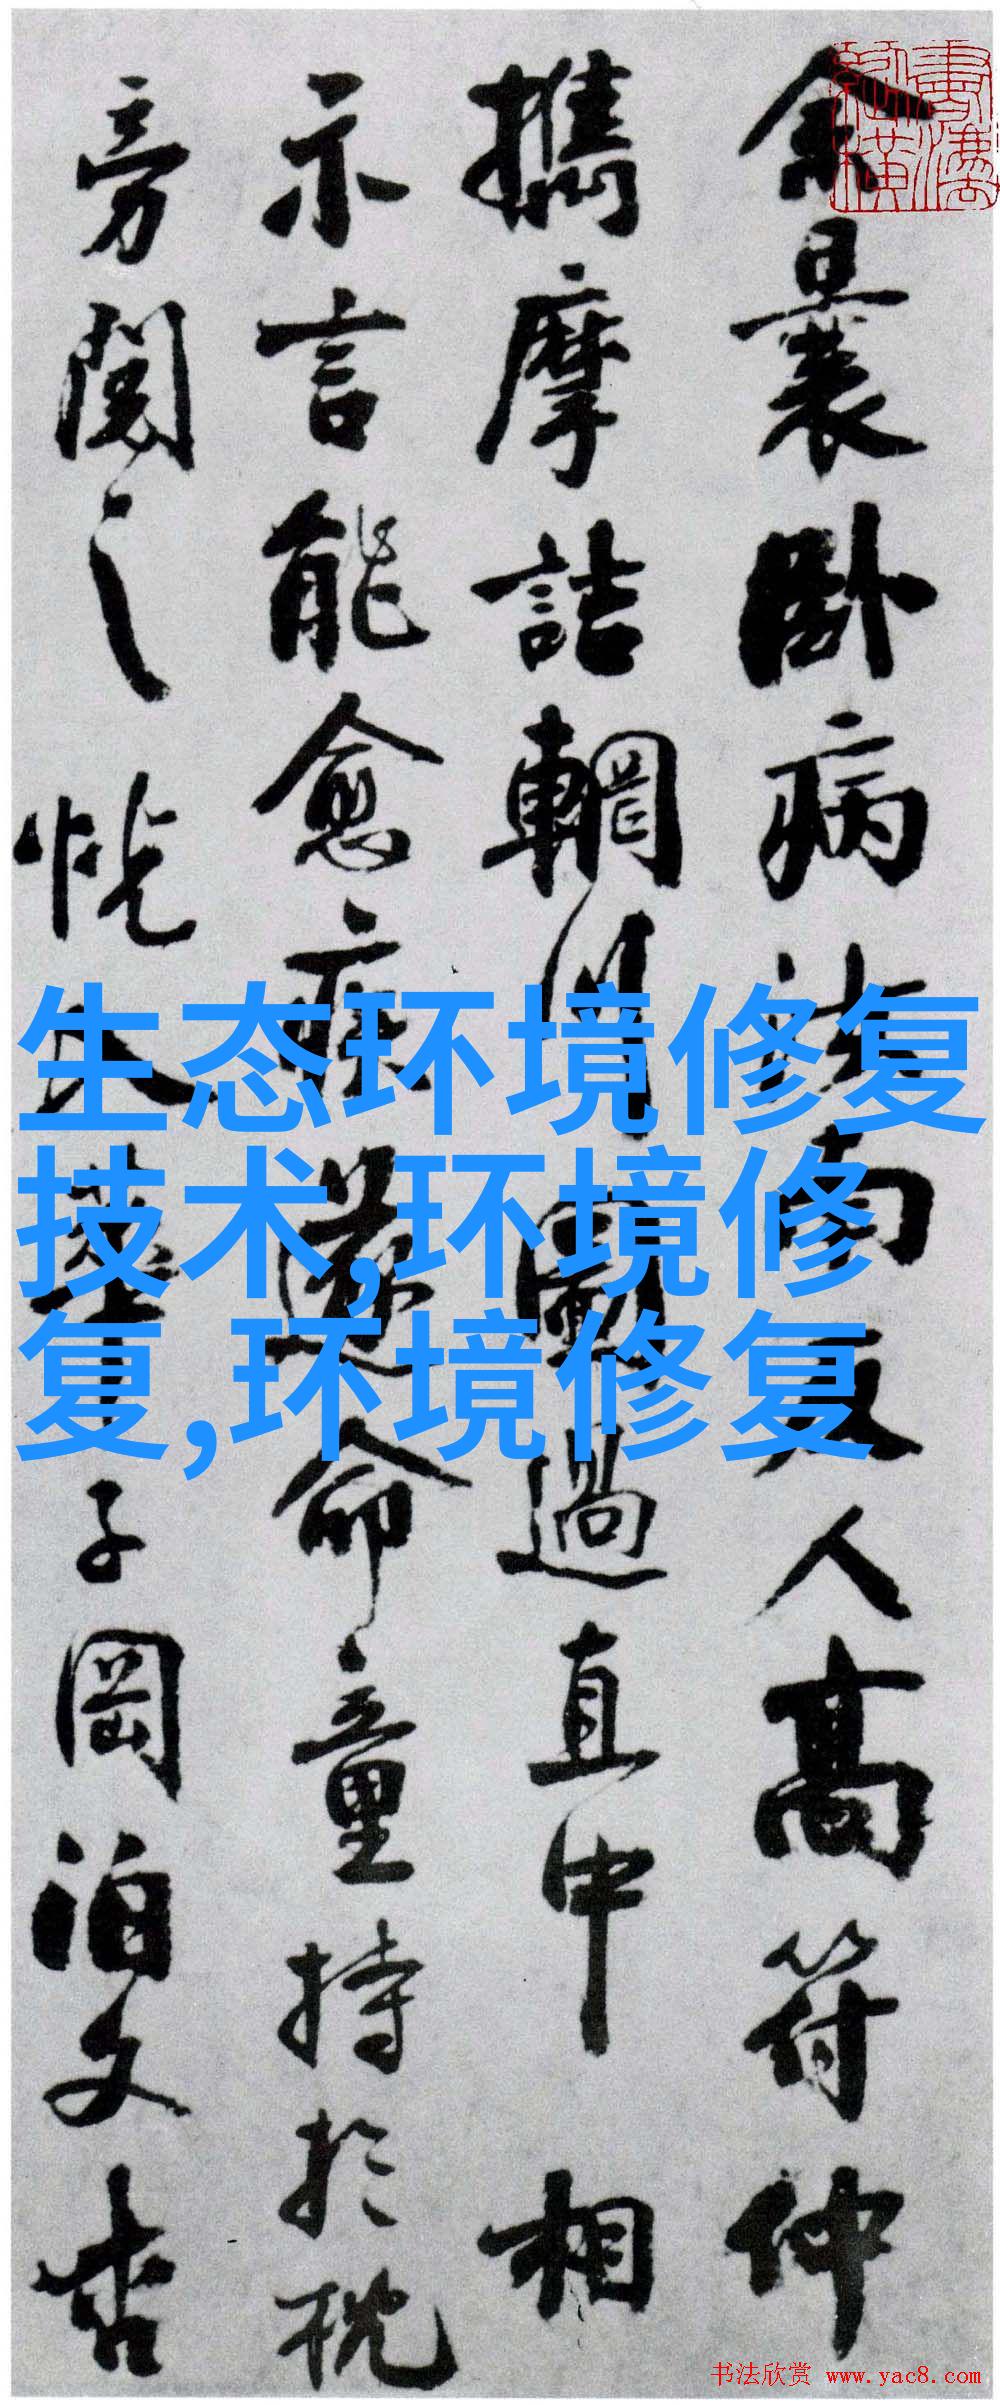 余曩卧病汝南友人高符仲
攜摩詰輞川圖過直中相
示言能愈疾遂命童持於枕
旁閱之恍入華子岡泊文杏
生态环境修复
技术,环境修
复,环境修复
书法欣赏 www.yac8.com